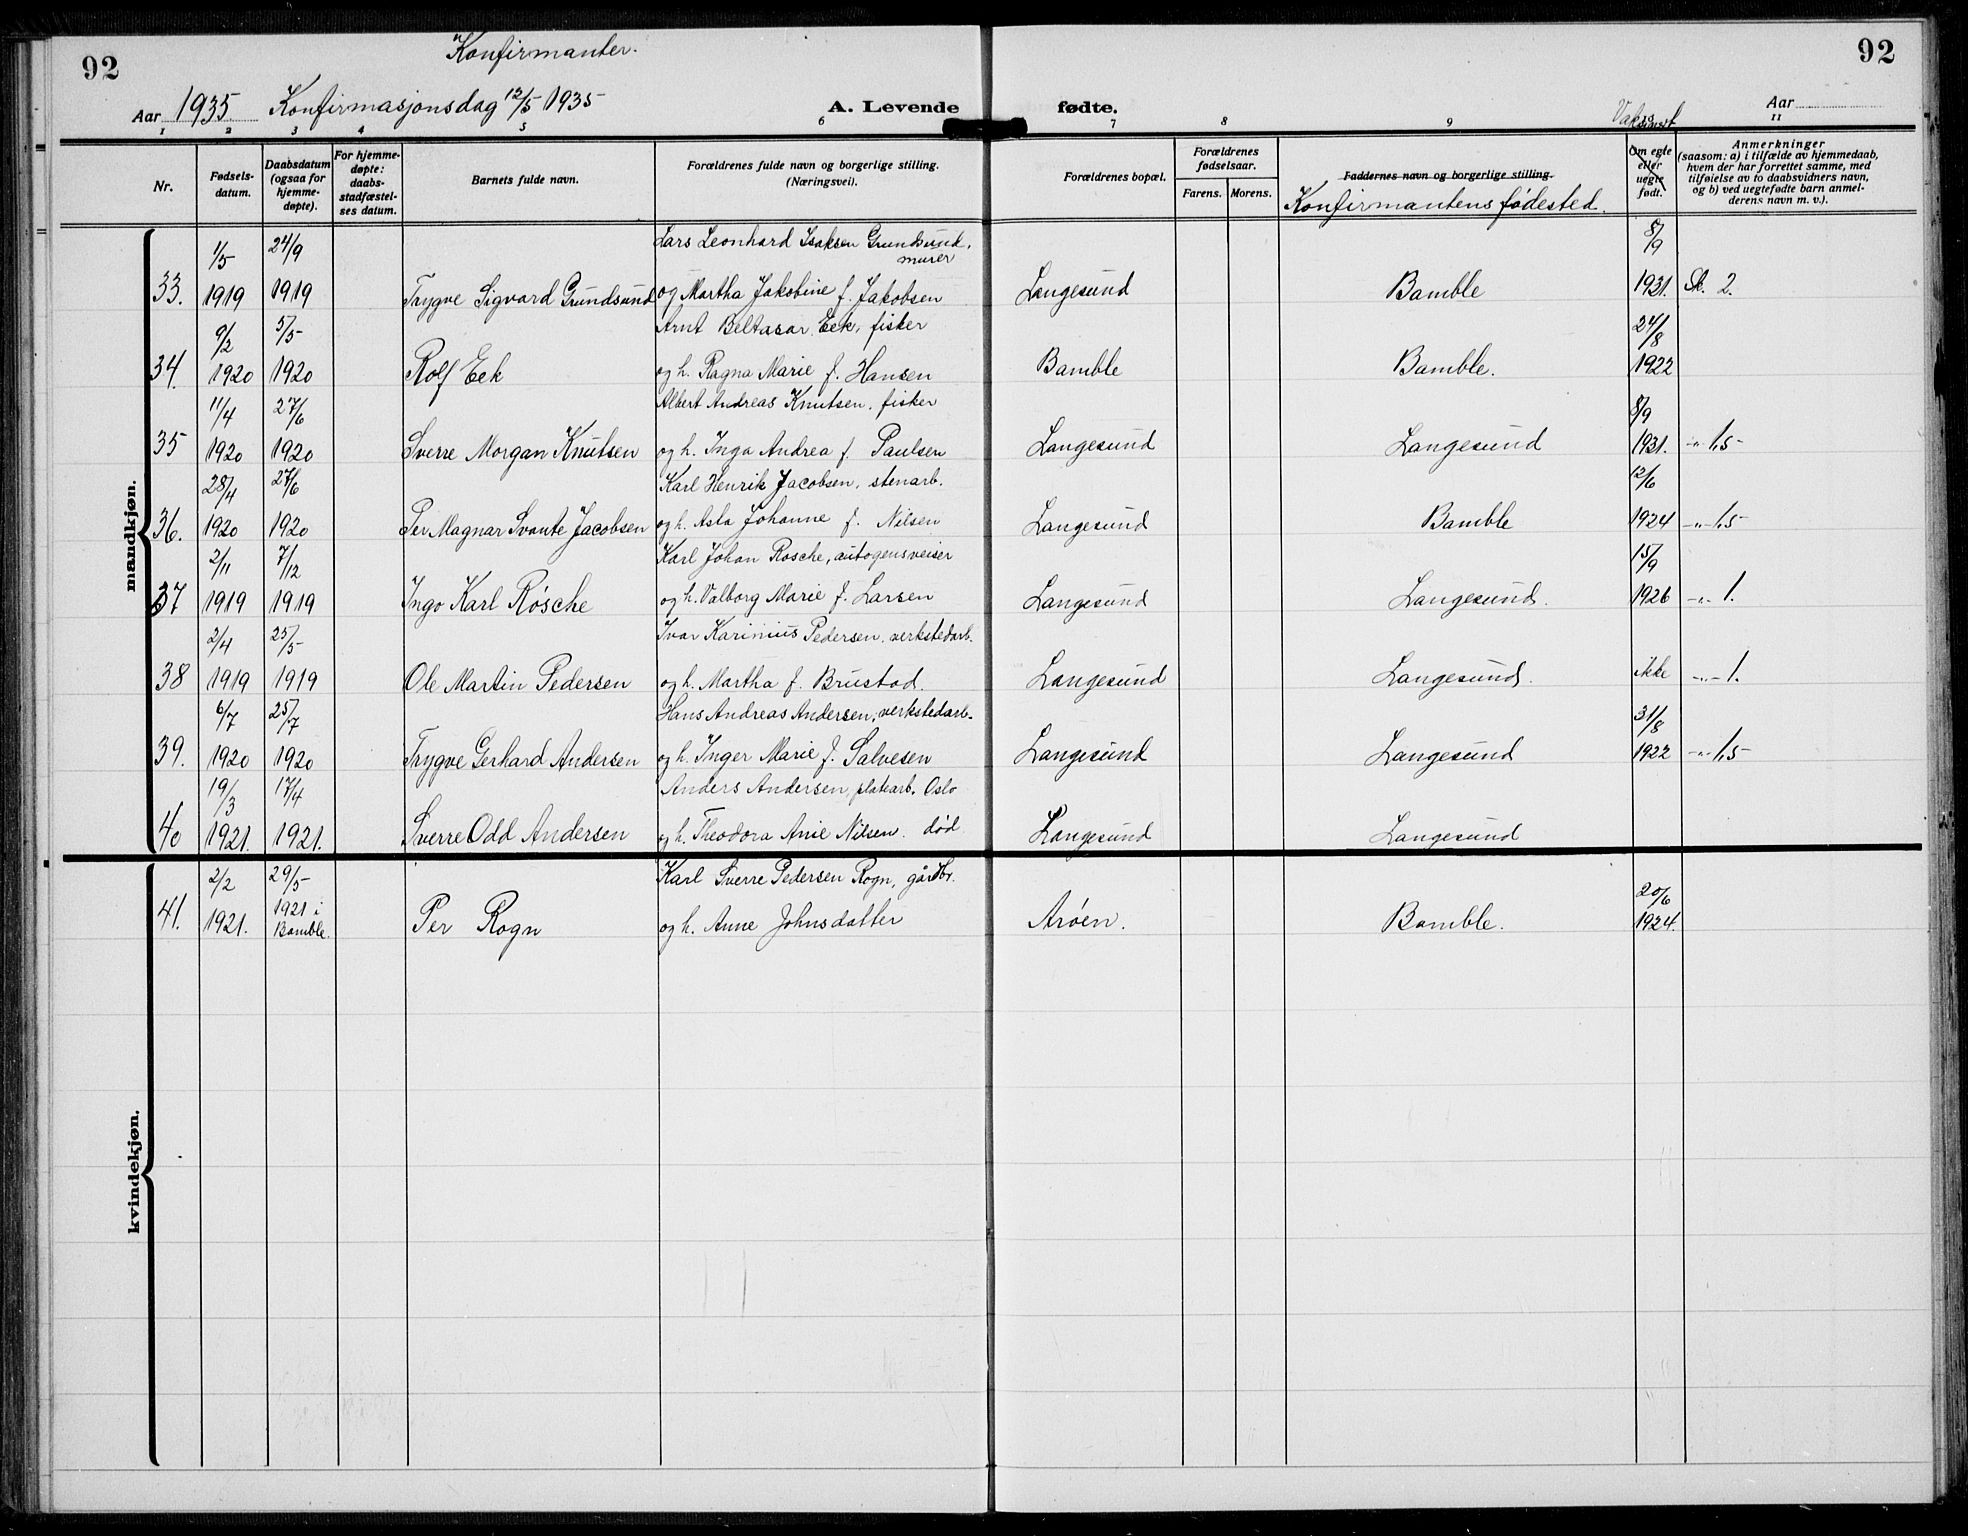 92
Konfirmanter.
92
Aar 1935. Konfirmasjonsdag 12/5 1935
A. Levende fødte.
Aar
1 2 3 4 5 6 7 8 9 10 11
Vaksinert
Nr.
Fødsels-
datum.
Daabsdatum
(ogsaa for
hjemme-
døpte).
For hjemme-
døpte:
daabs-
stadfæstel-
ses datum.
Barnets fulde navn.
Forældrenes fulde navn og borgerlige stilling.
(Næringsvei).
Forældrenes bopæl.
Forældrenes
fødselsaar.
Farens. Morens.
Faddernes navn og borgerlige stilling.
Konfirmantens fødested.
Om egte
eller
uegte
født.
Anmerkninger
(saasom: a) i tilfælde av hjemmedaab,
hvem der har forrettet samme, med
tilføielse av to daabsvidners navn,
og b) ved uegtefødte barn anmel-
derens navn m. v.).
mandkjøn.
1/5 24/9 Lars Leonhard Isaksen Grundsund, 8/9
murer
33. 1919 1919 Trygve Sigvard Grundsund og Martha Jakobine f. Jakobsen Langesund Bamble 1931. Sk. 2.
9/2 5/5 Arnt Beltasar Eek, fisker 24/8
34. 1920 1920 Rolf Eek og h. Ragna Marie f. Hansen Bamble Bamble. 1922
11/4 27/6 Albert Andreas Knutsen, fisker 8/9
35 1920 1920 Sverre Morgan Knutsen og h. Inga Andrea f. Paulsen Langesund Langesund 1931. -"- 1,5
28/4 27/6 Karl Henrik Jacobsen, stenarb. 12/6
36. 1920 1920 Per Magnar Svante Jacobsen og h. Asla Johanne f. Nilsen Langesund Bamble 1924 -"- 1,5
2/11 7/12 Karl Johan Rosche, autogensveiser 15/9
37 1919 1919 Ingo Karl Røsche og h. Valborg Marie f. Larsen Langesund Langesund. 1926 -"- 1.
2/4 25/5 Ivar Karinius Pedersen, verkstedarb.
38 1919 1919 Ole Martin Pedersen og h. Martha f. Brustad. Langesund Langesund. ikke -"- 1.
6/7 25/7 Hans Andreas Andersen, verkstedarb. 31/8
39. 1920 1920 Trygve Gerhard Andersen og h. Inger Marie f. Salvesen Langesund Langesund 1922 -"- 1,5
19/3 17/4 Anders Andersen, platearb. Oslo
40 1921. 1921. Sverre Odd Andersen og h. Theodora Anie Nilsen. død Langesund Langesund
kvindekjøn.
2/2 29/5 Karl Sverre Pedersen Rogn, gårdbr. 20/6
41. 1921. 1921 i Per Rogn og h. Anne Johnsdatter Arøen. Bamble. 1924.
Bamble.